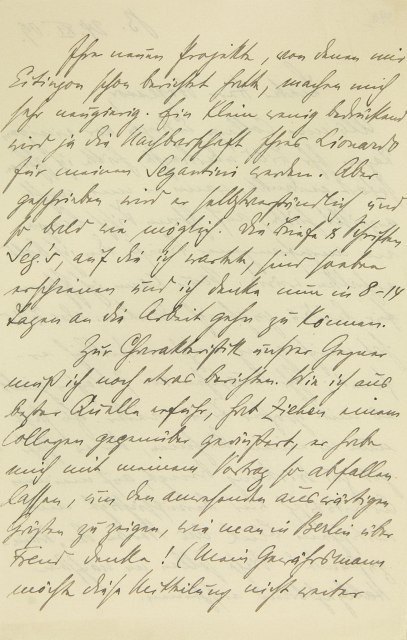 Ihre neuen Projekte, von denen mir
Eitingon schon berichtet hatte, machen mich
sehr neugierig. Ein klein wenig bedrückend
wird ja die Nachbarschaft Ihres Lionardo
für meinen Segantini werden. Aber
geschrieben wird er selbstverständlich und
so bald wie möglich. Die Briefe & Schriften
Seg's, auf die ich wartete, sind soeben
erschienen und ich denke nun in 8-14
Tagen an die Arbeit gehn zu können.
Zur Charakteristik unsrer Gegner
muß ich noch etwas berichten. Wie ich aus
bester Quelle erfuhr, hat Ziehen einem
Collegen gegenüber geäußert, er habe
mich mit meinem Vortrag so abfallen
lassen, um den anwesenden auswärtigen
Gästen zu zeigen, wie man in Berlin über
Freud denke! (Mein Gewährsmann
möchte diese Mitteilung nicht weiter